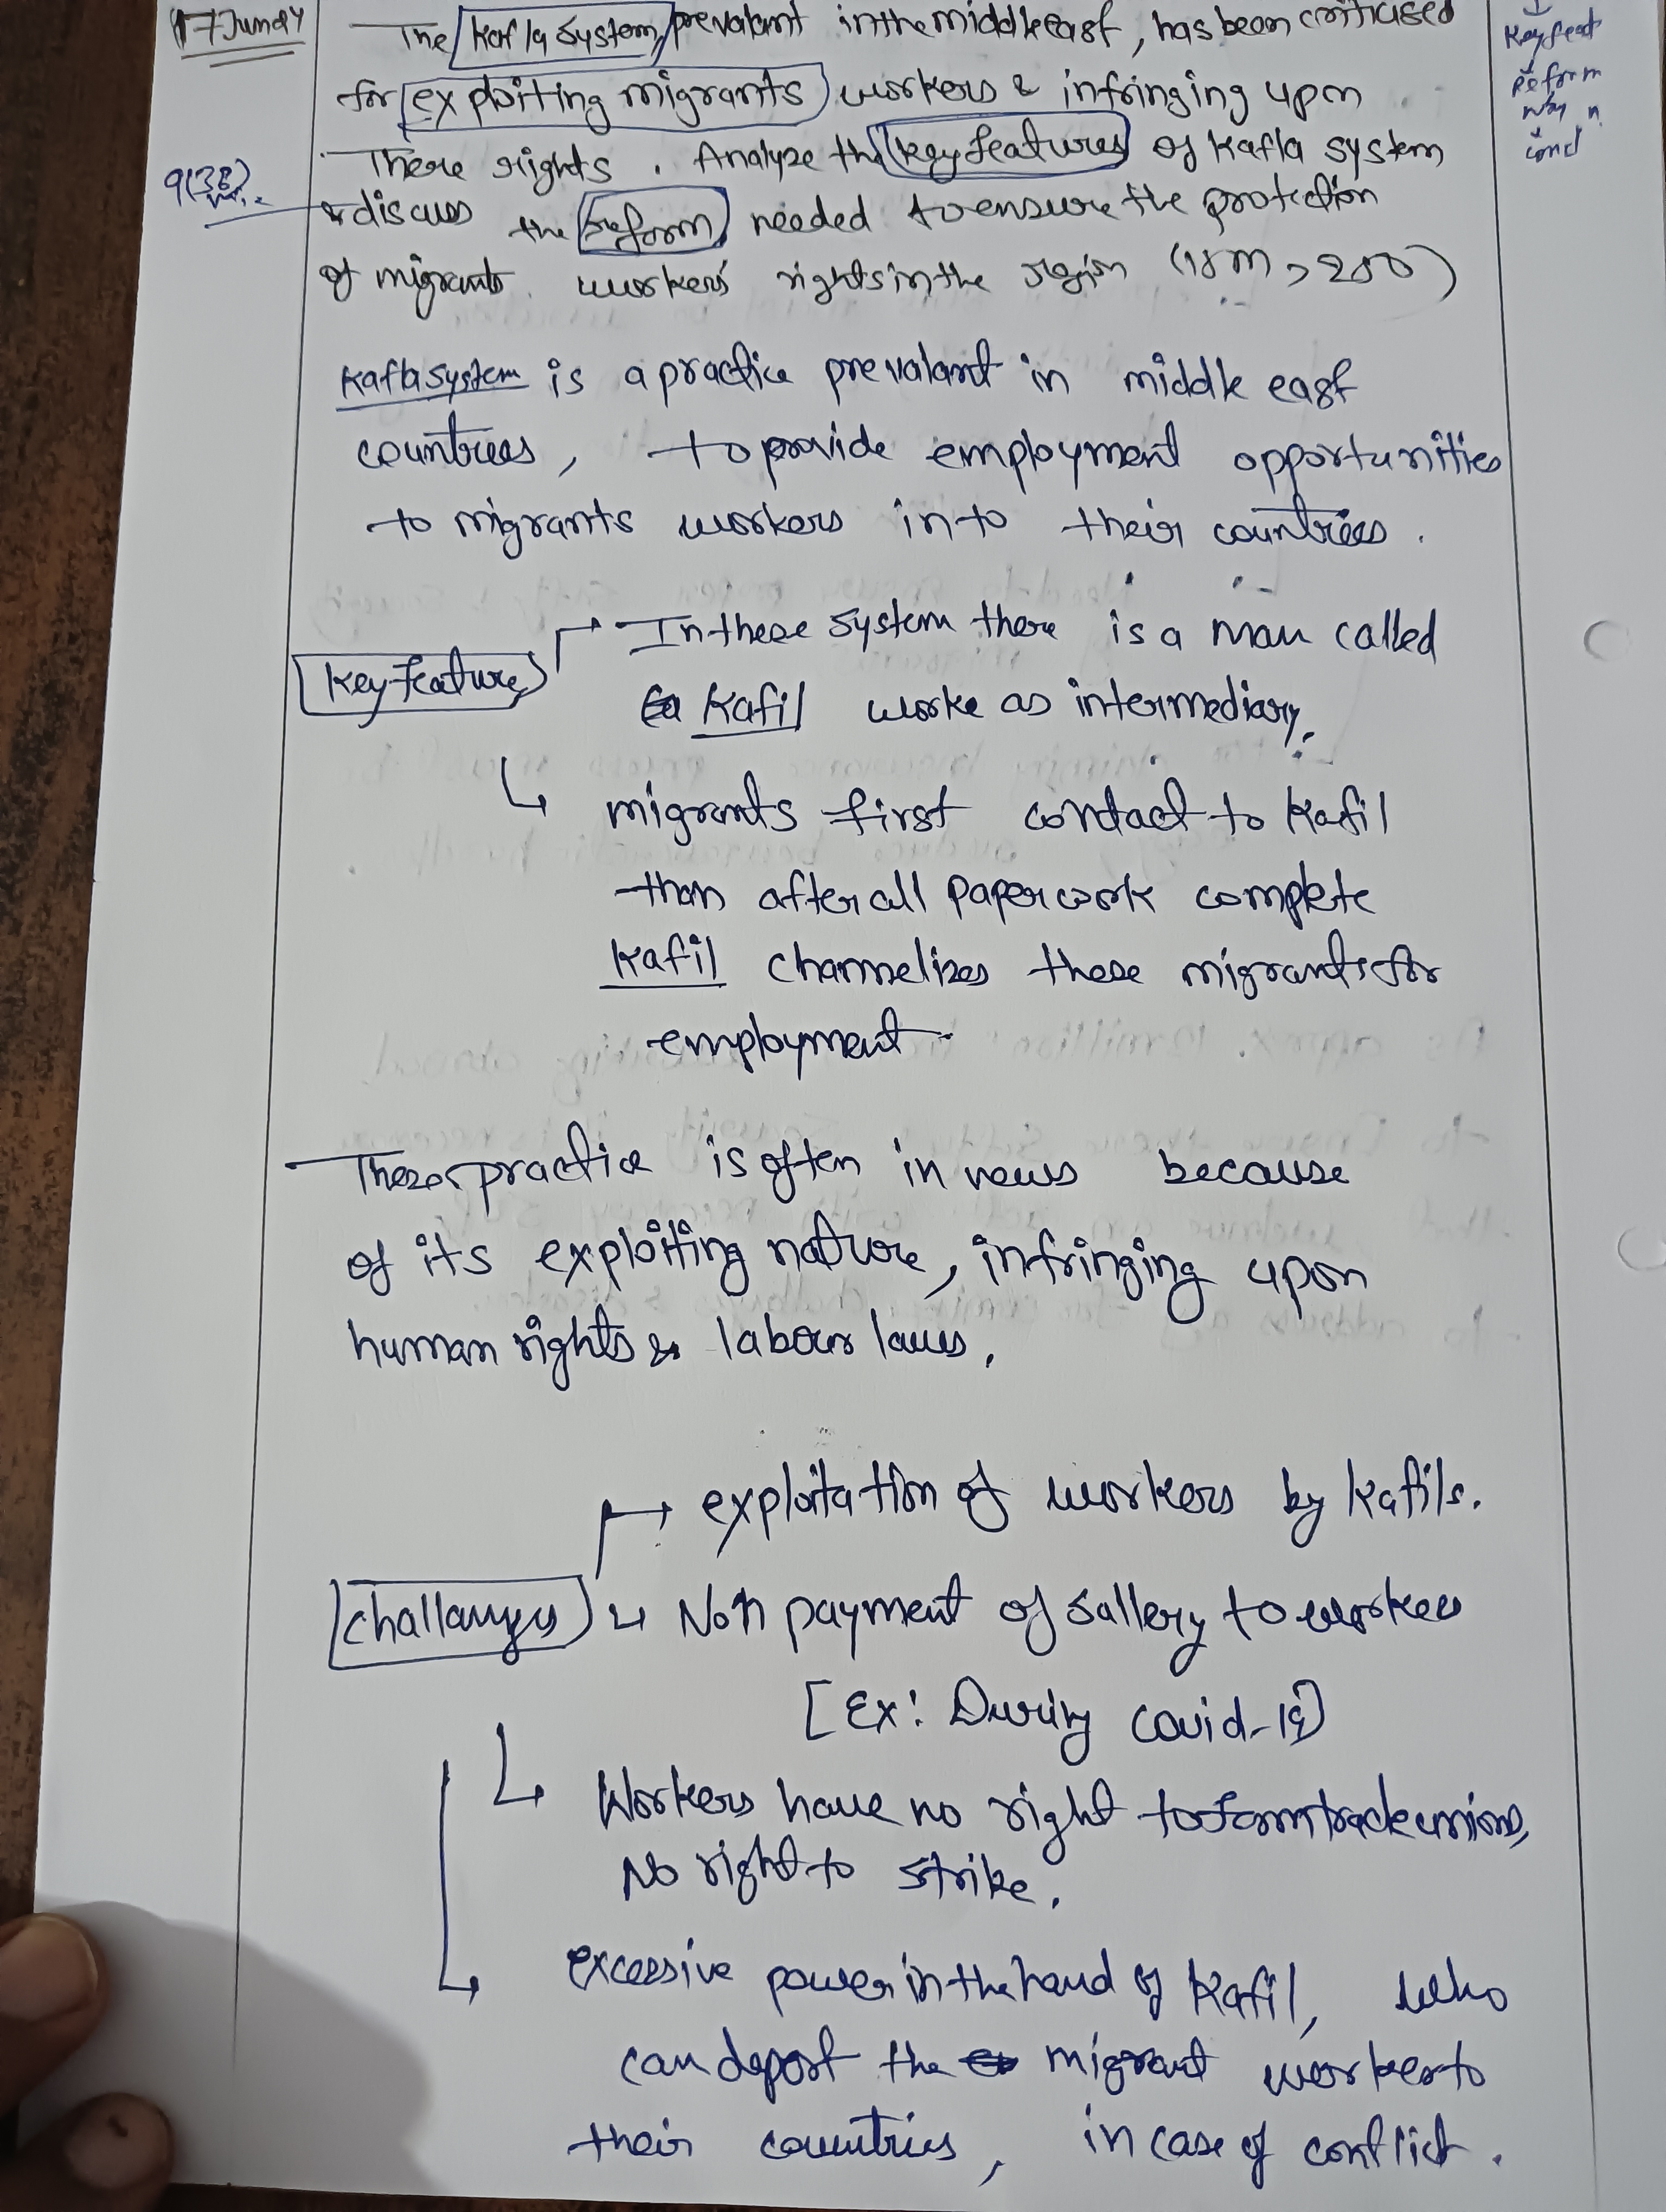 17 June 24
The Kafla system, prevalant in the middle east, has been criticised
for exploiting migrants workers & infringing upon
There rights. Analyze the key features of Kafla system
& discuss the reform needed to ensure the protection
of migrants workers' rights in the region (15m, 250)
Key feat
Reform
way n
concl
Kafla system is a practice prevalant in middle east
countries, to provide employment opportunities
to migrants workers into their countries.
Key feature
In these system there is a man called
Kafil worke as intermediary.
migrants first contact to Kafil
than after all paper work complete
Kafil channelizes these migrants for
employment
These practice is often in news because
of its exploiting nature, infringing upon
human rights & labour laws.
exploitation of workers by Kafils.
challanges
Non payment of sallery to workers
[Ex: During covid-19]
Workers have no right to form trade unions,
No right to strike.
excessive power in the hand of Kafil, who
can deport the migrant worker to
their countries, in case of conflict.